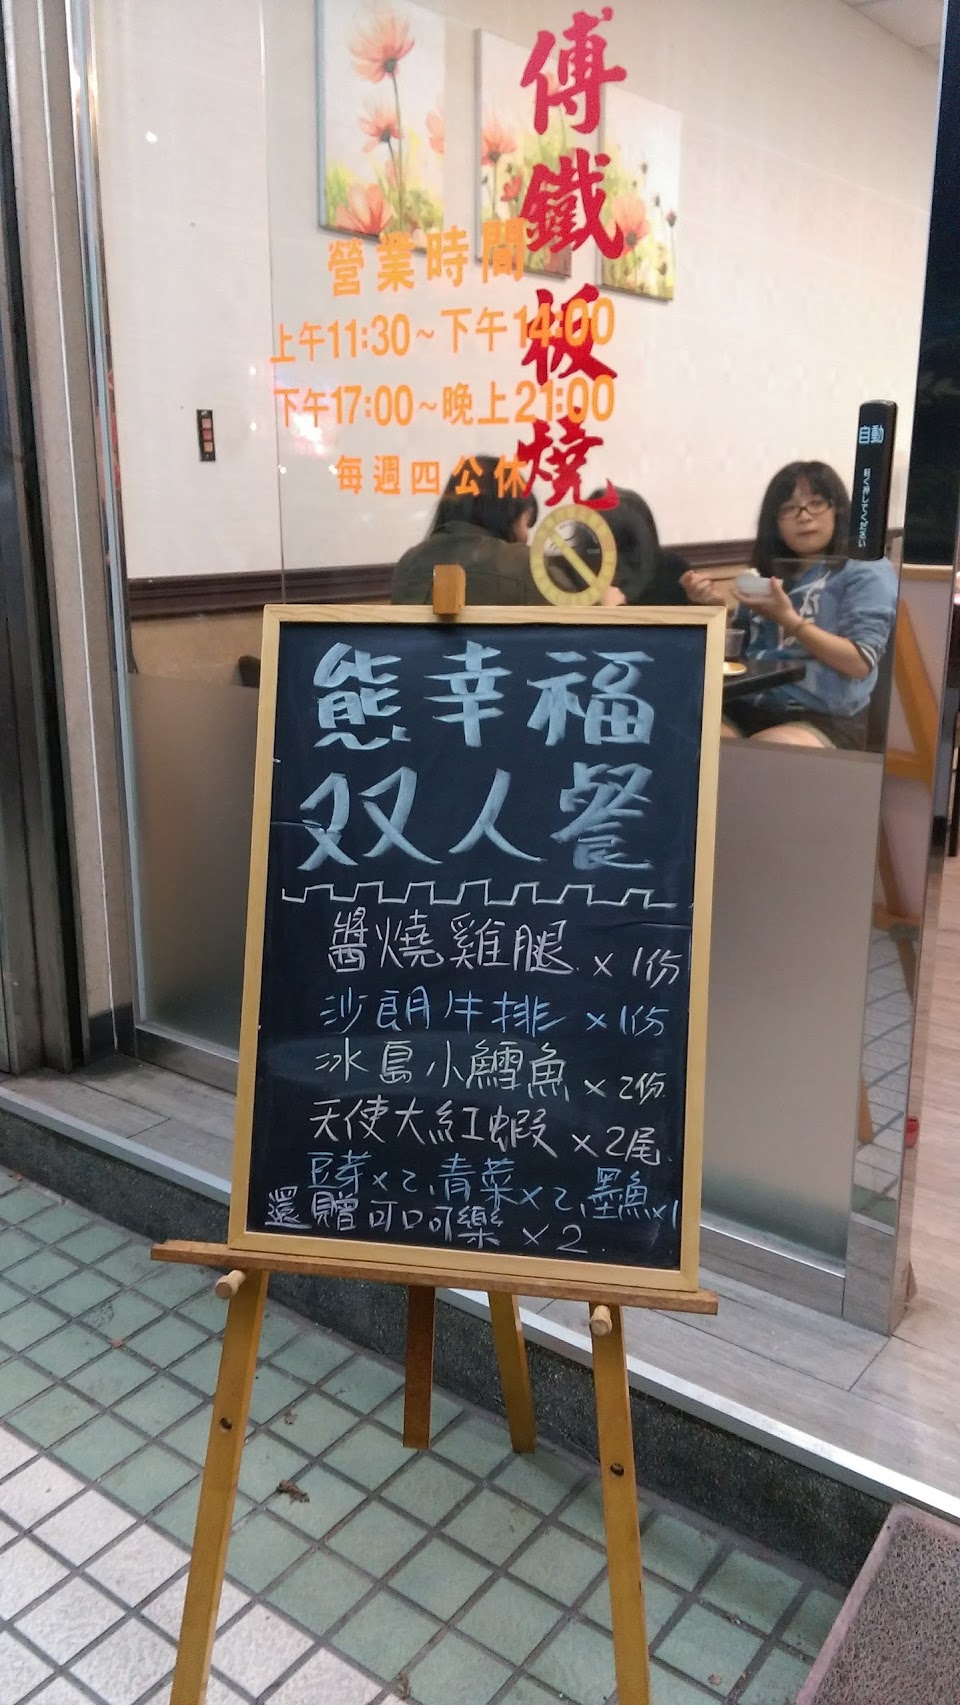 傅鐵板燒
營業時間
上午11:30~下午14:00
下午17:00~晚上21:00
每週四公休
自動
軽く押してください
熊幸福
双人餐
醬燒雞腿 x 1份
沙朗牛排 x 1份
冰島小鱈魚 x 2份
天使大紅蝦 x 2尾
豆芽x2、青菜x2、墨魚x1
還贈可口可樂 x 2.